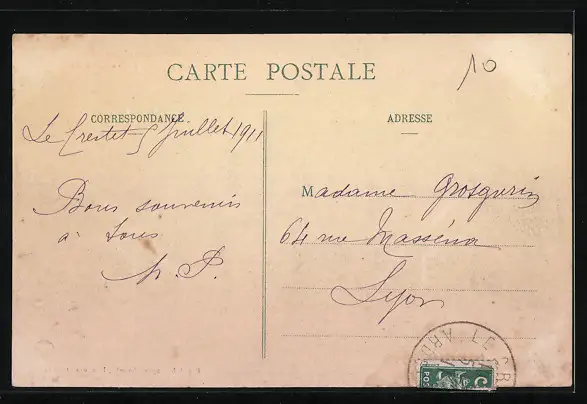 CARTE POSTALE
10
CORRESPONDANCE
ADRESSE
Le Crestet 5 Juillet 1911
Bons souvenirs
à tous
M. P.
Madame Grosgurin
64 rue Masséna
Lyon
LE CR
ARD
5
POS